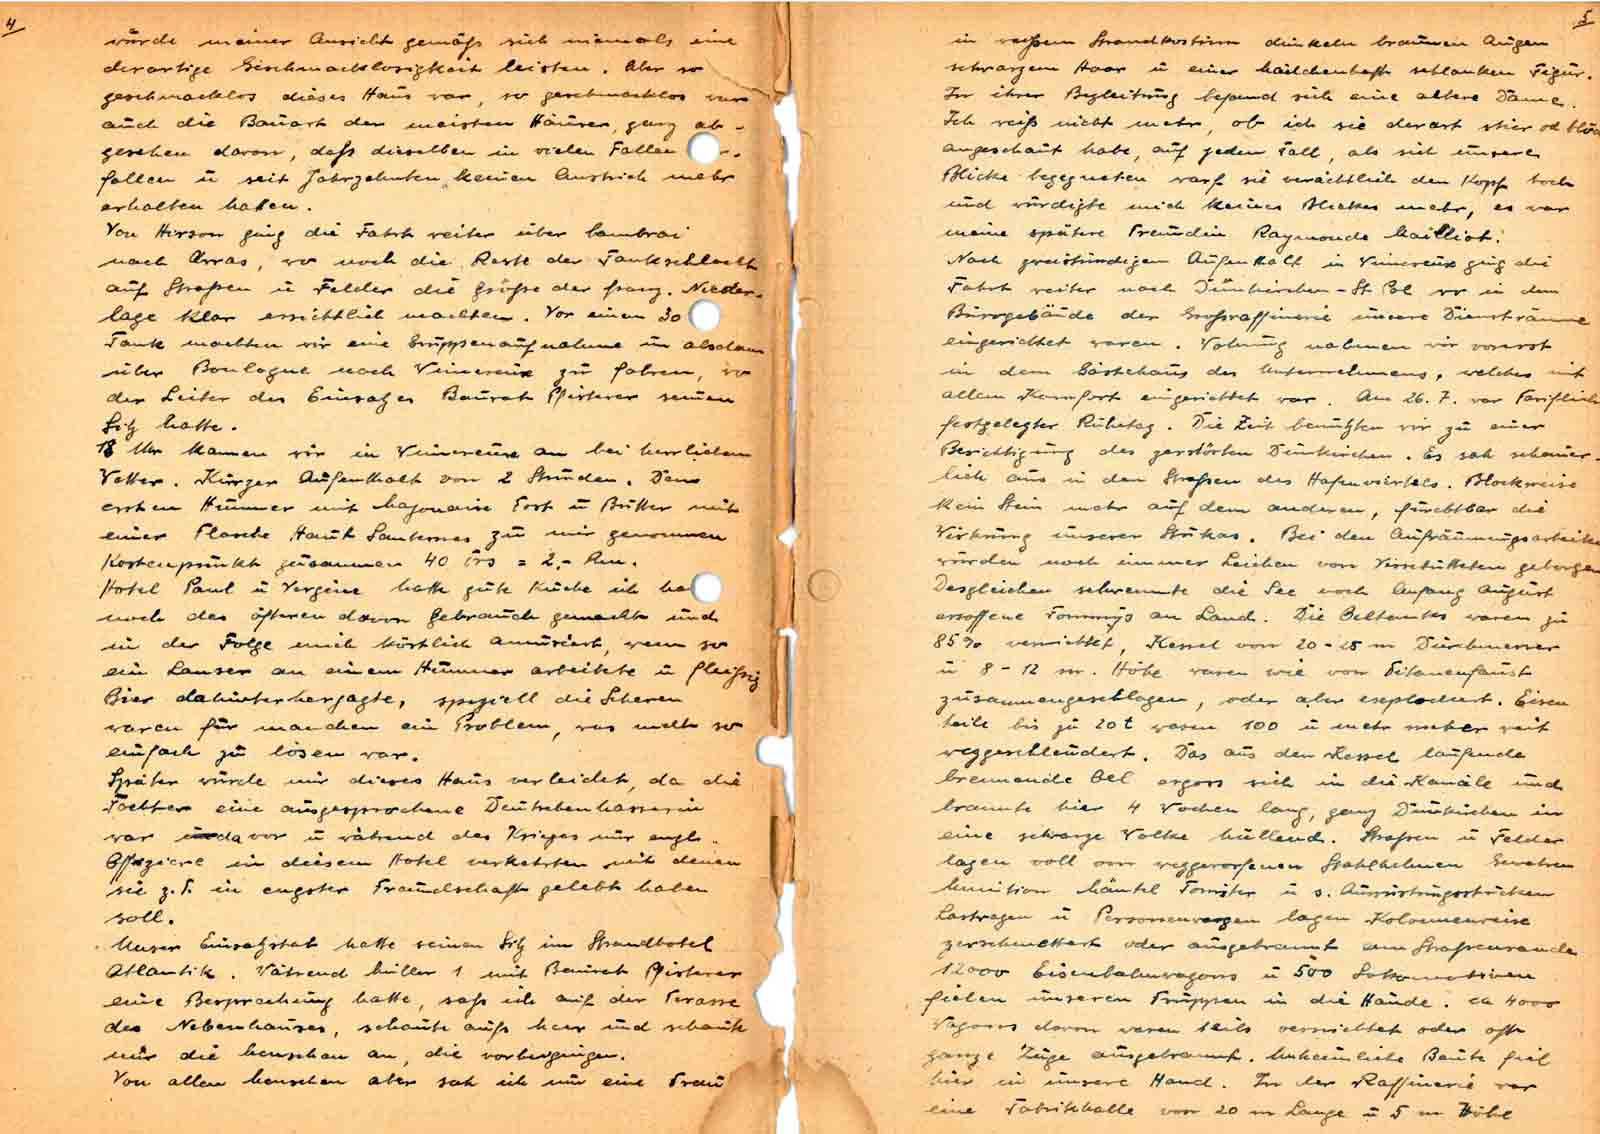 4
würde meiner Ansicht gemäß sich niemals eine
derartige Geschmacklosigkeit leisten. Aber so
geschmacklos dieses Haus war, so geschmacklos war
auch die Bauart der meisten Häuser, ganz ab-
gesehen davon, daß dieselben in vielen Fällen
fallen u seit Jahrzehnten keinen Anstrich mehr
erhalten haben.
Von Hirson ging die Fahrt weiter über Cambrai
nach Arras, wo noch die Reste der Tankschlacht
auf Straßen u Felder die größe der franz. Nieder-
lage klar ersichtlich machten. Vor einem 30
Tank machten wir eine Gruppenaufnahme um alsdann
über Boulogne nach Vimereux zu fahren, wo
der Leiter des Einsatzes Baurat Pfisterer seinen
Sitz hatte.
18 Uhr kamen wir in Vimereux an bei herrlichem
Wetter. Kurzer Aufenthalt von 2 Stunden. Dens
ersten Hummer mit Majonaise Tost u Butter mit
einer Flasche Haut Sauternes zu mir genommen
Kostenpunkt zusammen 40 frs = 2,- Rm.
Hotel Paul u Vergine hatte gute Küche ich ha
noch des öfteren davon Gebrauch gemacht und
in der Folge mich köstlich amüsiert, wenn so
ein Lanser an einem Hummer arbeitete u fleißig
Bier dahinterherjagte, speziell die Scheren
waren für manchen ein Problem, was nicht so
einfach zu lösen war.
Später wurde mir dieses Haus verleidet, da die
Tochter eine ausgesprochene Deutschenhasserin
war u davor u während des Krieges nur engl.
Offiziere in diesem Hotel verkehrten mit denen
sie z.T. in engster Freundschaft gelebt haben
soll.
Unser Einsatzstab hatte seinen Sitz im Strandhotel
Atlantik. Während Müller 1 mit Baurat Pfisterer
eine Besprechung hatte, saß ich auf der Terasse
des Nebenhauses, schaute aufs Meer und schaute
mir die Menschen an, die vorbeigingen.
Von allen Menschen aber sah ich nur eine Frau
5
in weißem Strandkostüm dunkeln braunen Augen
schwarzem Haar u einer mädchenhaft schlanken Figur.
In ihrer Begleitung befand sich eine ältere Dame.
Ich weiß nicht mehr, ob ich sie derart stier od blöd
angeschaut habe, auf jeden Fall, als sich unsere
Blicke begegneten warf sie verächtlich den Kopf hoch
und würdigte mich keines Blickes mehr, es war
meine spätere Freundin Raymonde Mailliot.
Nach zweistündigem Aufenthalt in Vimereux ging die
Fahrt weiter nach Dünkirchen-St Pol wo in dem
Bürogebäude der Großraffinerie unsere Diensträume
eingerichtet waren. Wohnung nahmen wir vorerst
in dem Gästehaus des Unternehmens, welches mit
allem Komfort eingerichtet war. Am 26.7. war Tariflich
festgelegter Ruhetag. Die Zeit benutzten wir zu einer
Besichtigung des zerstörten Dünkirchen. Es sah schauer-
lich aus in den Straßen des Hafenviertels. Blockweise
kein Stein mehr auf dem anderen, furchtbar die
Wirkung unserer Stukas. Bei den Aufräumungsarbeiten
wurden noch immer Leichen von Verschütteten geborgen
Desgleichen schwemmte die See noch Anfang August
ersoffene Tommys an Land. Die Oeltanks waren zu
85% vernichtet, Kessel von 20-25 m Durchmesser
u 8-12 m. Höhe waren wie von Titanenfaust
zusammengeschlagen, oder aber explodiert. Eisen
teile bis zu 20t waren 100 u mehr meter weit
weggeschleudert. Das aus den Kessel laufende
brennende Oel ergoss sich in die Kanäle und
brannte hier 4 Wochen lang, ganz Dünkirchen in
eine schwarze Wolke hüllend. Straßen u Felder
lagen voll von weggeworfenen Stahlhelmen Gewehren
Munition Mäntel Tornister u s. Ausrüstungsstücken
Lastwagen u Personenwagen lagen Kolonnenweise
zerschmettert oder ausgebrannt am Straßenrande
12000 Eisenbahnwagons u 500 Lokomotiven
fielen unseren Truppen in die Hände. ca 4000
Wagons davon waren teils vernichtet oder oft
ganze Züge ausgebrannt. Unheimliche Beute fiel
hier in unsere Hand. In der Raffinerie war
eine Fabrikhalle von 20 m Länge u 5 m Höhe